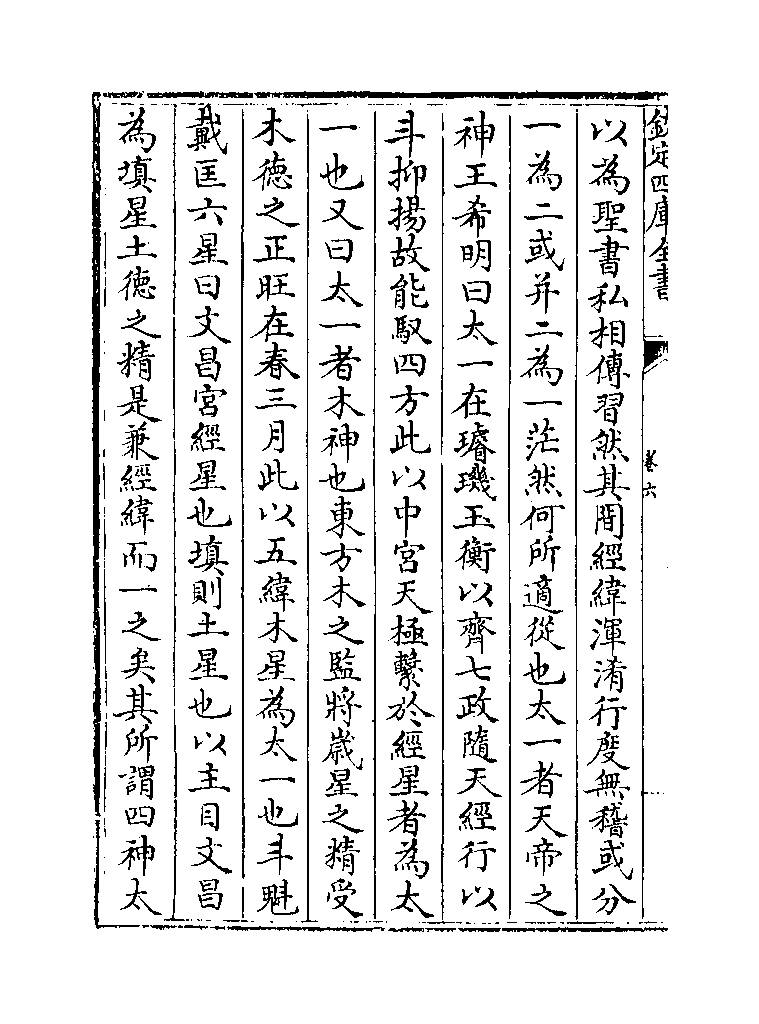 欽定四庫全書
卷六
以為聖書私相傳習然其間經緯渾淆行度無稽或分
一為二或并二為一茫然何所適從也太一者天帝之
神王希明曰太一在璿璣玉衡以齊七政隨天經行以
斗抑揚故能馭四方此以中宮天極繫於經星者為太
一也又曰太一者木神也東方木之監將歲星之精受
木德之正旺在春三月此以五緯木星為太一也斗魁
戴匡六星曰文昌宮經星也填則土星也以主目文昌
為填星土德之精是兼經緯而一之矣其所謂四神太